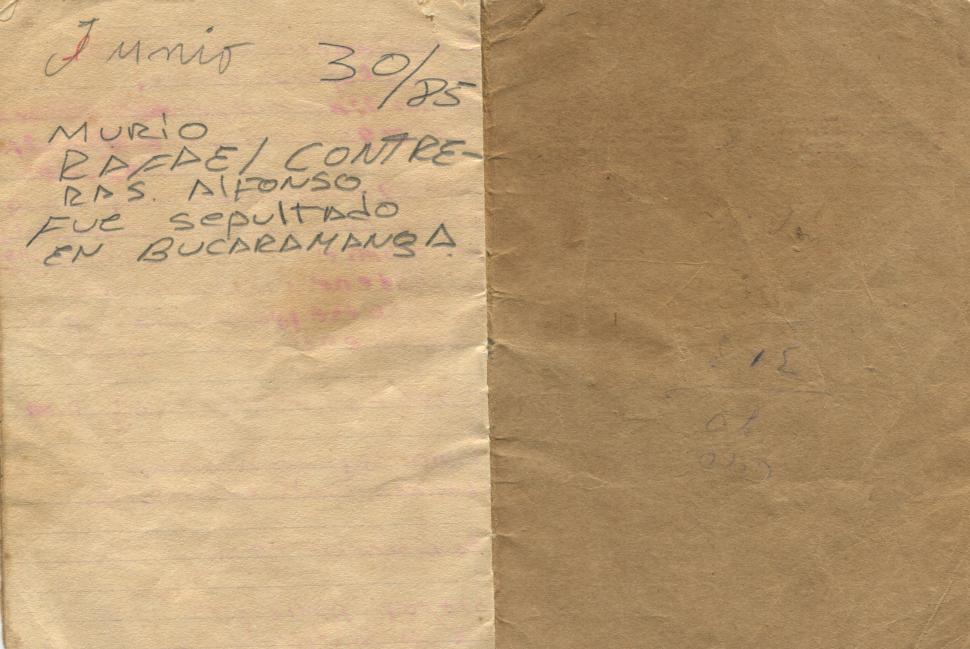 Junio 30/85
MURiO
RAFAEl CONTRE-
RAS. AlFONSO.
FUE sepultado
EN BUCARAMANGA.